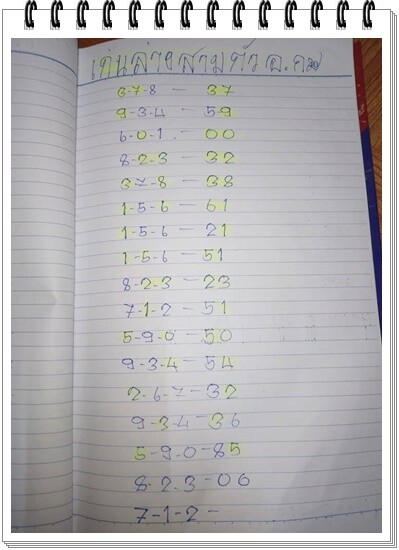 เด่นล่างสามตัว อ.กฤ
3-7-8 — 37
9-3-4 — 59
6-0-1 — 00
8-2-3 — 32
3-7-8 — 38
1-5-6 — 61
1-5-6 — 21
1-5-6 — 51
8-2-3 — 23
7-1-2 — 51
5-9-0 — 50
9-3-4 — 54
2-6-7 — 32
9-3-4 — 36
5-9-0 — 85
8-2-3 — 06
7-1-2 —